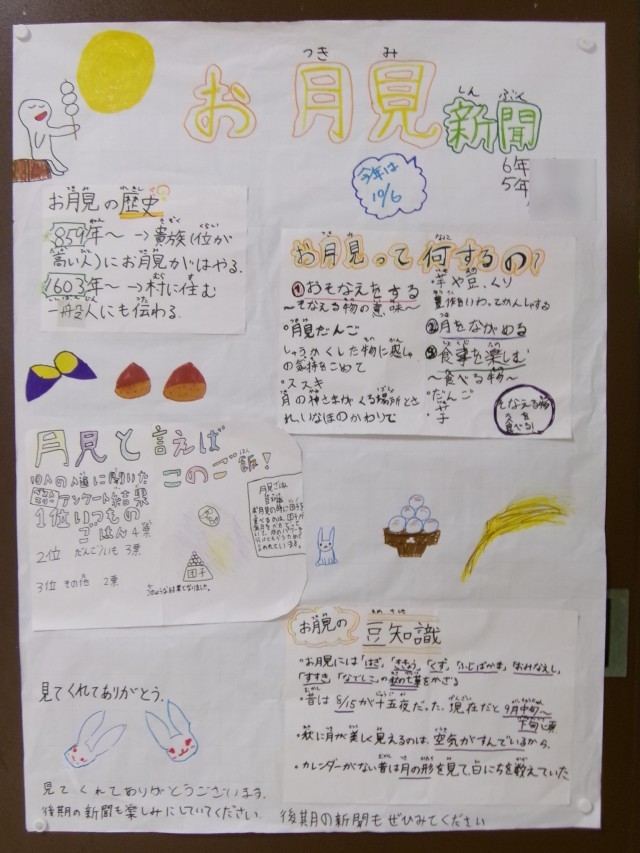 お月見新聞
6年
5年
今年は
10/6
お月見の歴史
859年〜→貴族(位が
高い人)にお月見がはやる。
1603年〜→村に住む
一般人にも伝わる。
お月見って何するの?
①おそなえをする
〜そなえる物の意味〜
・月見だんご
しゅうかくした物に感しゃ
の気持をこめて
・ススキ
月の神さまがくる場所とさ
れ、いなほのかわりで
・芋や豆、くり
豊作をいわってかんしゃする
②月をながめる
③食事を楽しむ
〜食べる物〜
・だんご
・芋
そなえる物
を
食べる!
月見と言えば
このご飯!
10人の人達に聞いた
アンケート結果
1位いつもの
ごはん 4票
2位 だんご/いも 3票
3位 その他 2票
団子
このような結果となりました。
お月見の豆知識
・お月見には「はぎ」「ききょう」「くず」「ふじばかま」「おみなえし」
「すすき」「なでしこ」の秋の七草をかざる
・昔は8/15が十五夜だった。現在だと9月中旬〜
・秋に月が美しく見えるのは、空気がすんでいるから。
・カレンダーがない昔は月の形を見て、日にちを数えていた
見てくれてありがとう。
見てくれてありがとうございます。
後期の新聞も楽しみにしていてください。
後期の新聞もぜひみてください